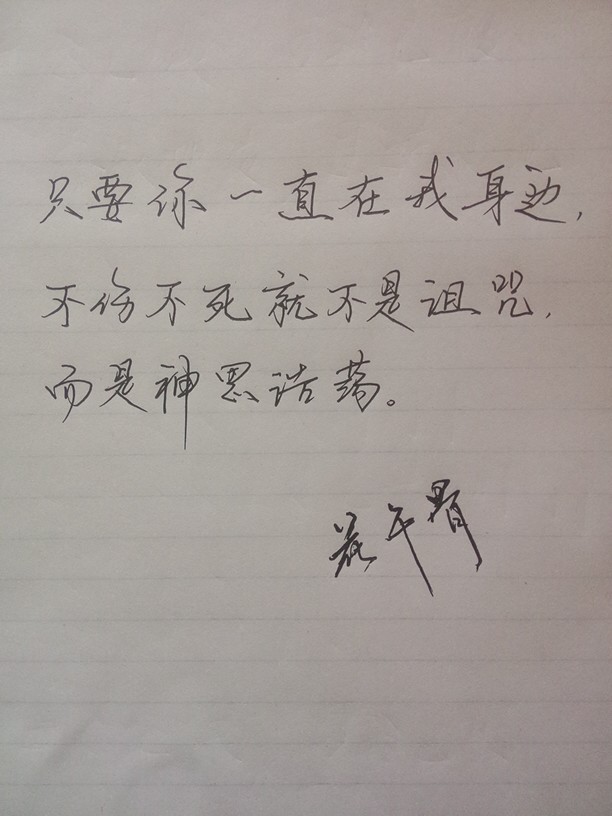 只要你一直在我身边,
不伤不死就不是诅咒,
而是神恩浩荡。